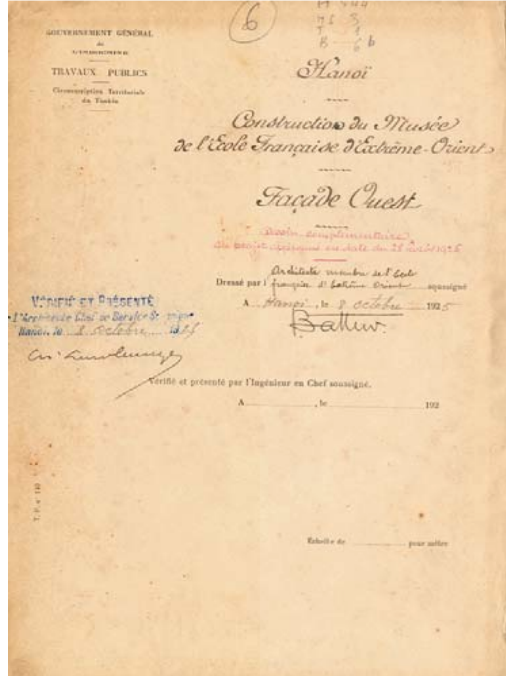 GOUVERNEMENT GÉNÉRAL
de
L'INDOCHINE
TRAVAUX PUBLICS
Circonscription Territoriale
du Tonkin
6
H
3
1
B 6 b
Hanoï
Construction du Musée
de l'Ecole Française d'Extrême-Orient
Façade Ouest
complémentaire
au projet en date du 28 1925
Dressé par l Architecte membre de l'Ecole
française d'Extrême Orient soussigné
A Hanoï, le 8 octobre 1925
Batteur
VÉRIFIÉ ET PRÉSENTÉ
l'Architecte Chef de Service
Hanoi, le 8 octobre 1925
Vérifié et présenté par l'Ingénieur en Chef soussigné.
A , le 192
T. P. n° 142
Échelle de pour mètre